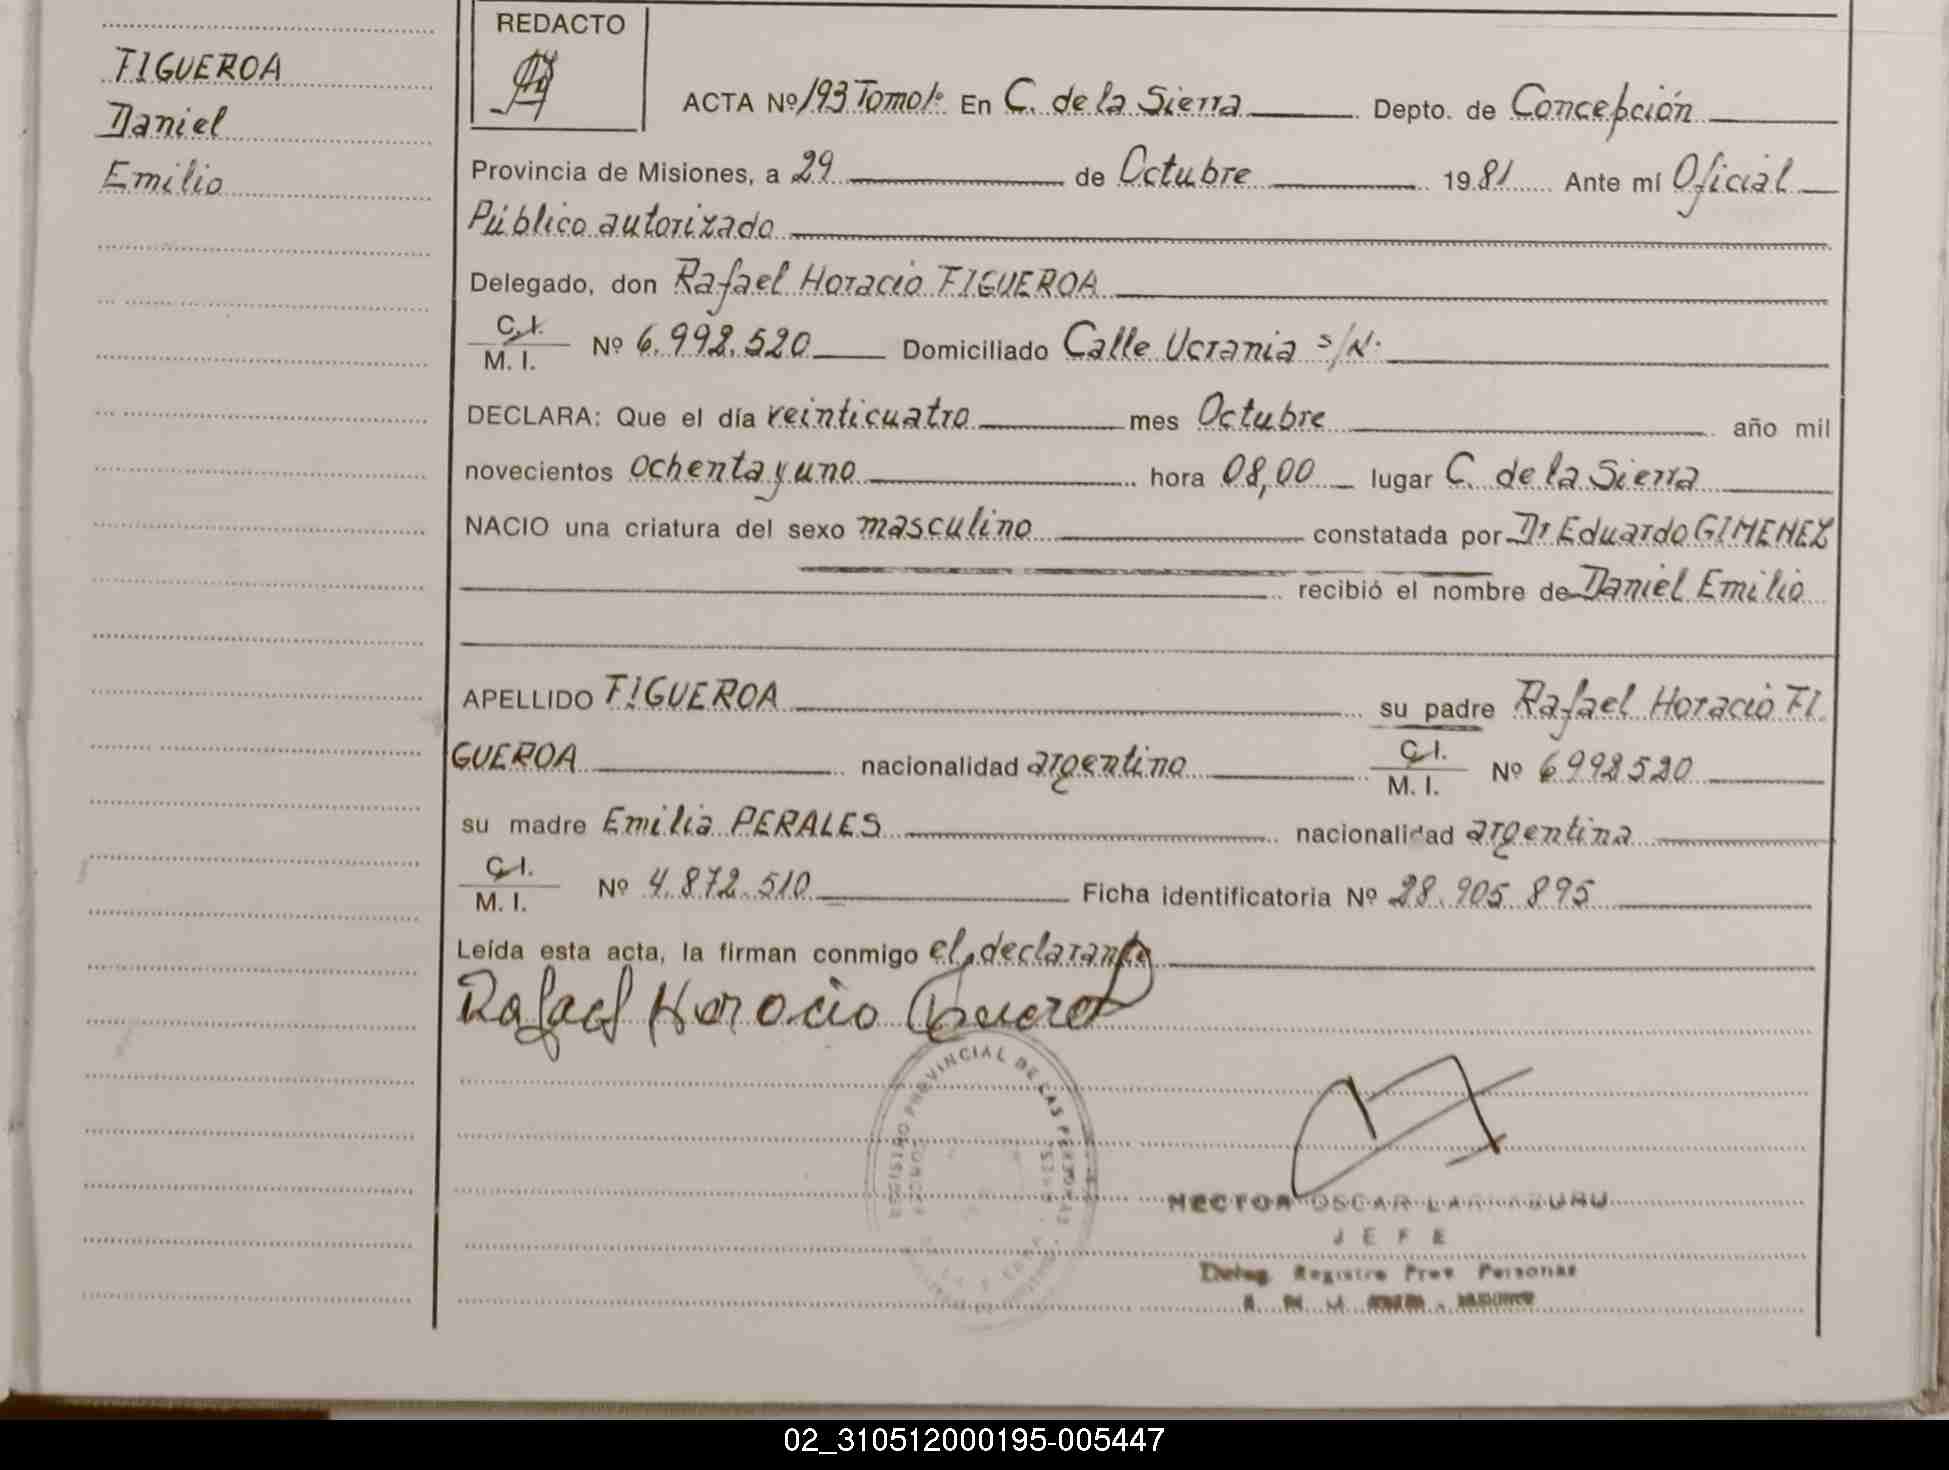 FIGUEROA
Daniel
Emilio
REDACTO
ACTA Nº 193 Tomo 1º En C. de la Sierra Depto. de Concepción
Provincia de Misiones, a 29 de Octubre 1981 Ante mí Oficial
Público autorizado
Delegado, don Rafael Horacio FIGUEROA
C.I.
M. I. Nº 6.998.520 Domiciliado Calle Ucrania s/N.
DECLARA: Que el día veinticuatro mes Octubre año mil
novecientos ochenta y uno hora 08,00 lugar C. de la Sierra
NACIO una criatura del sexo masculino constatada por Dr Eduardo GIMENEZ
recibió el nombre de Daniel Emilio
APELLIDO FIGUEROA su padre Rafael Horacio FI
GUEROA nacionalidad argentino C.I.
M. I. Nº 6998520
su madre Emilia PERALES nacionalidad argentina
C.I.
M. I. Nº 4.872.510 Ficha identificatoria Nº 28.905.895
Leída esta acta, la firman conmigo el declarante
Rafael Horacio Figueroa
REGISTRO PROVINCIAL DE LAS PERSONAS
HECTOR OSCAR LARRABURU
JEFE
Deleg. Registro Prov. Personas
02_310512000195-005447